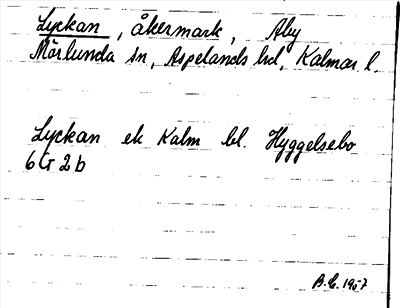 Lyckan, åkermark, Åby
Mörlunda sn, Aspelands hd, Kalmar l.
Lyckan ek Kalm bl. Hyggelsebo
6 G 2 b
1957